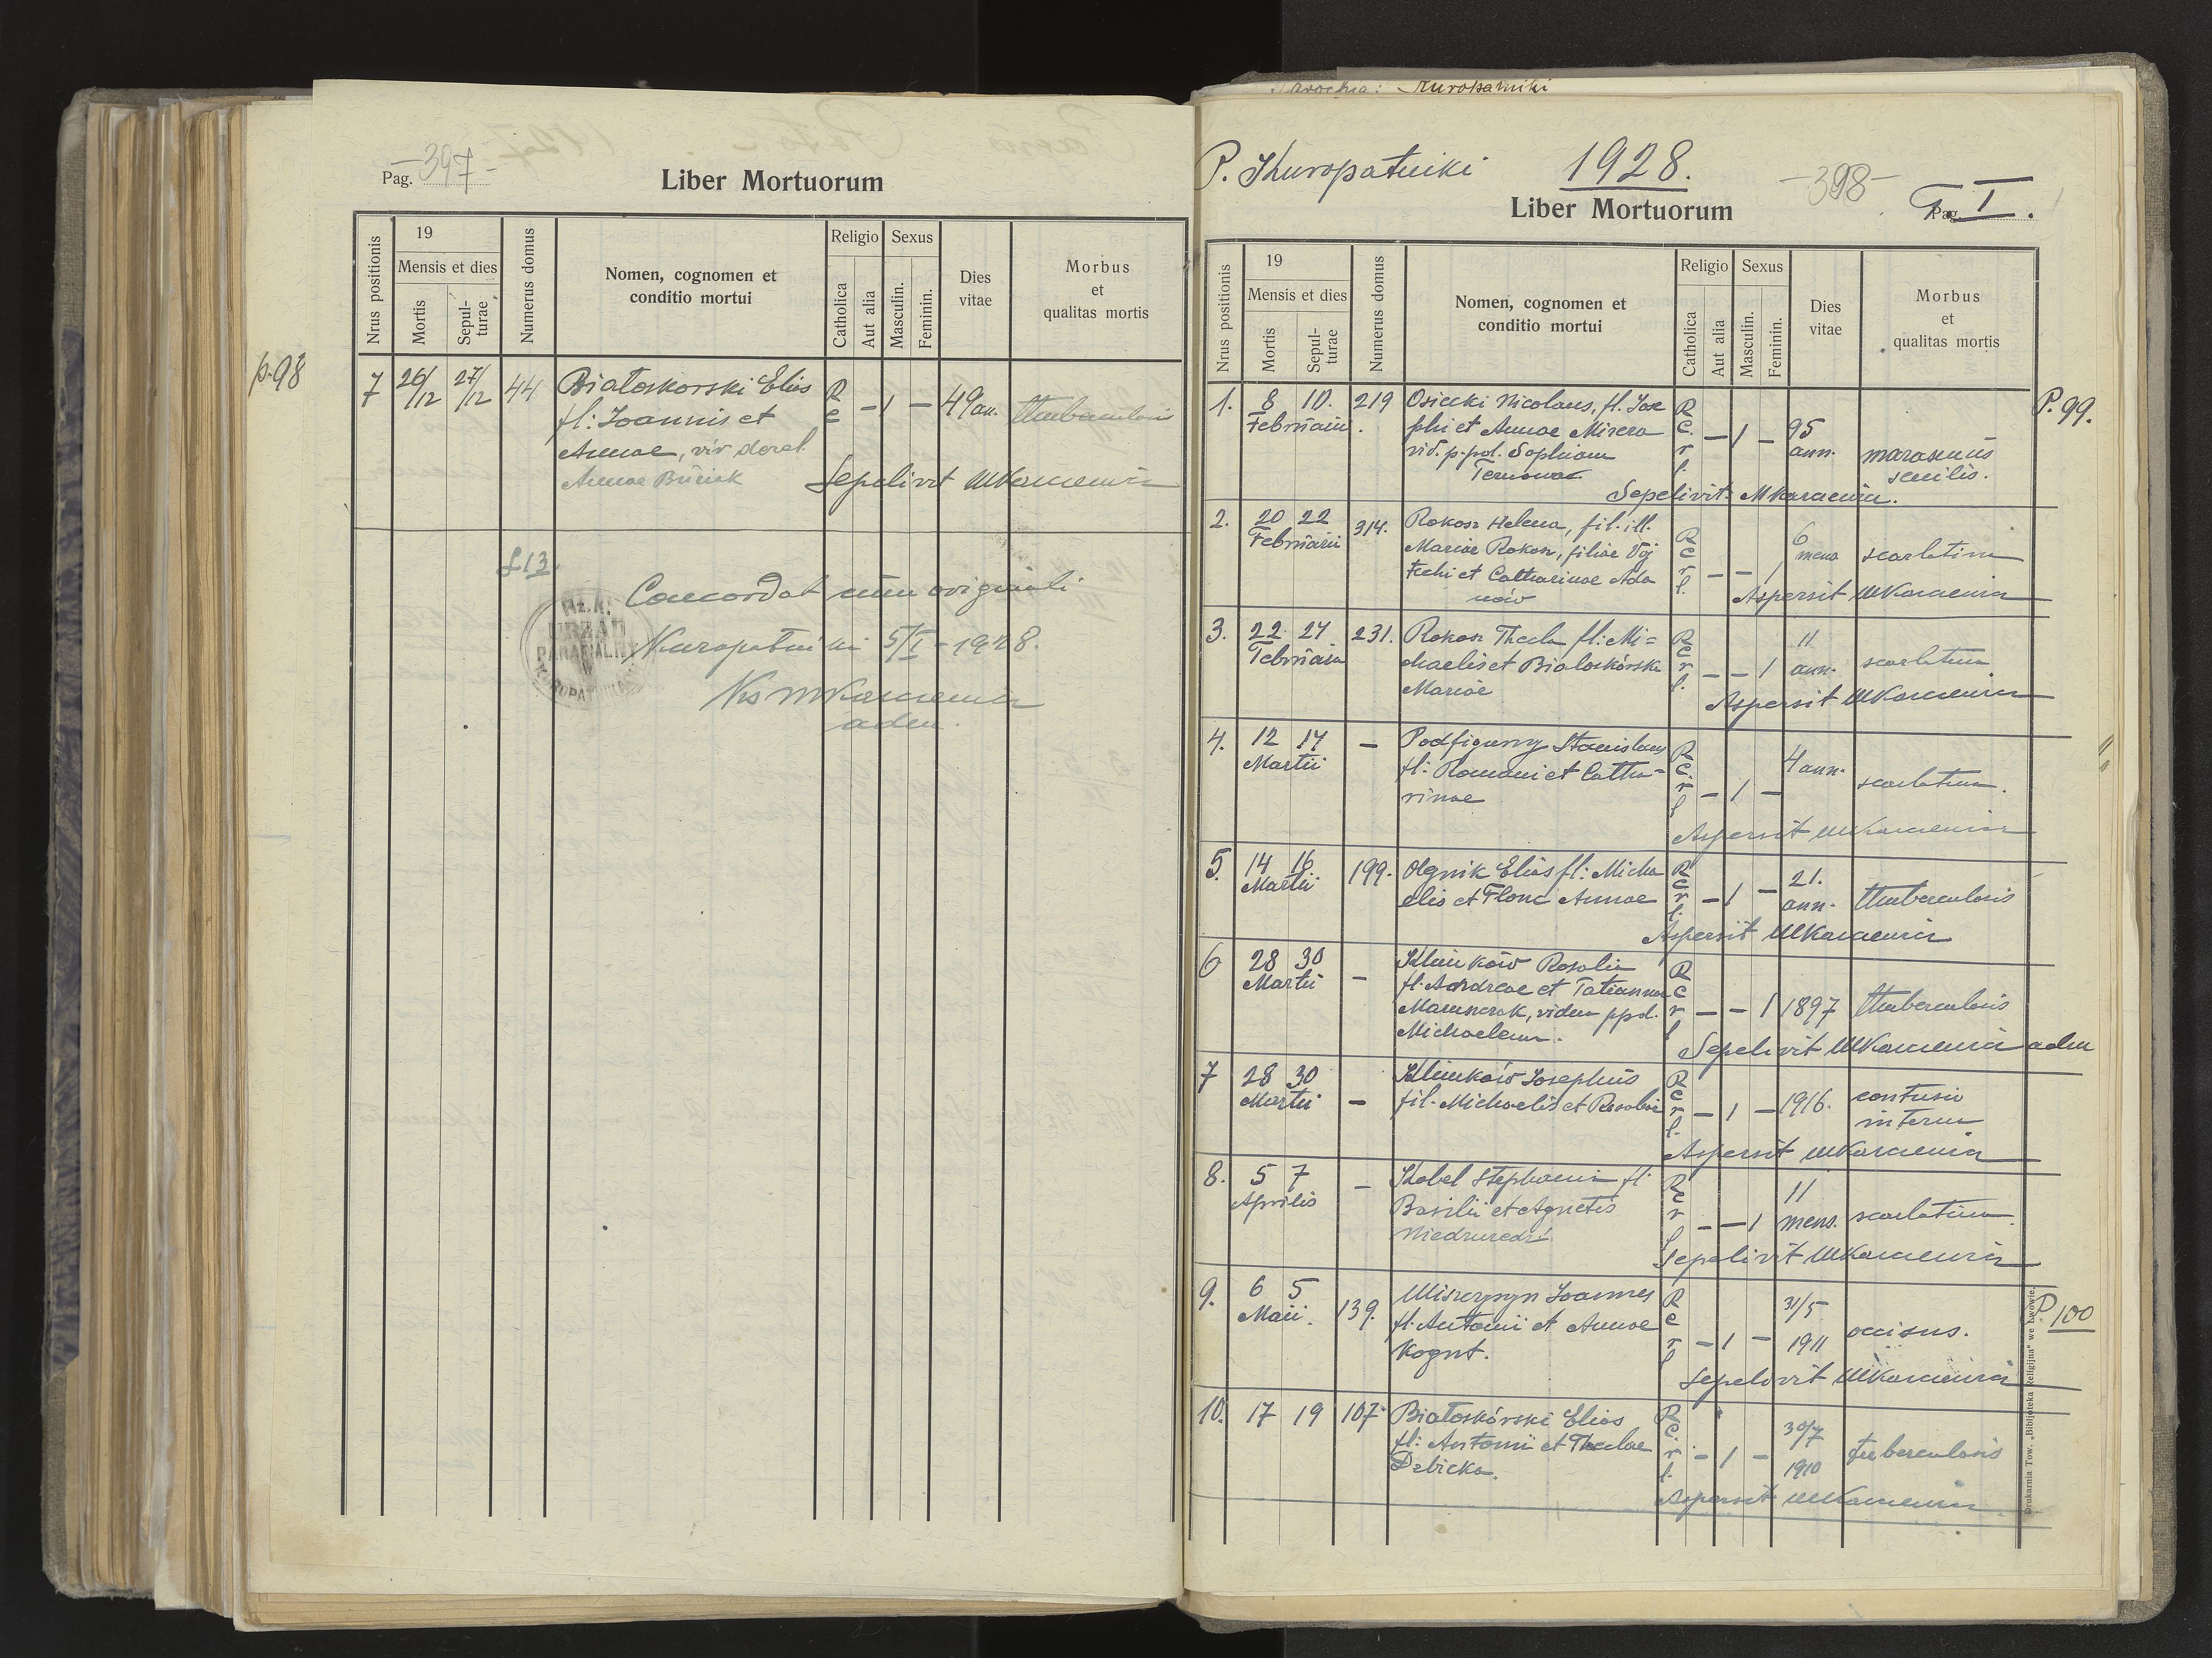 Pag. -397-
Liber Mortuorum
Nrus positionis
19
Mensis et dies
Mortis
Sepul-
turae
Numerus domus
Nomen, cognomen et
conditio mortui
Religio
Catholica
Aut alia
Sexus
Masculin.
Feminin.
Dies
vitae
Morbus
et
qualitas mortis
p. 98
7 26/12 27/12 44 Białoskorski Elias R c - 1 - 49 an. thuberculosis
fl: Joannis et
Annae, vir derel.
Annae
Sepelivit MKamienia
£13.
Concordat cum originali
Kuropatniki 5/I - 1928.
URZĄD
PARAFIALNY
adm.
Parochia: Kuropatniki
P. Kuropatniki 1928. -398-
Liber Mortuorum
Pag. I.
Nrus positionis
19
Mensis et dies
Mortis
Sepul-
turae
Numerus domus
Nomen, cognomen et
conditio mortui
Religio
Catholica
Aut alia
Sexus
Masculin.
Feminin.
Dies
vitae
Morbus
et
qualitas mortis
P. 99.
1. 8 10. 219 Osiecki Nicolaus, fl. Jose
Februarii. phi et Annae Misera
R. c. r. l. - 1 - 95 ann. marasmus
senilis.
vid. p. pol. Sophiam
Sepelivit:
2. 20 22 314. Rokosz Helena, fil. ill.
Februarii Mariae Rokosz, filiae Voj
R c r l. - - 1 6 mens scarlatina
techi et Catharinae Ada
mów
Aspersit
3. 22 24 231. Rokosz Thecla fl: Mi=
Februarii chaelis et Białoskórska
R c r l. - - 1 11 ann. scarlatina
Mariae
Aspersit
4. 12 14 - Podfigurny Stanislaus
Martii fl: Romani et Catha=
R c. r l - 1 - 4 ann. scarlatina.
rinae
Aspersit
5. 14 16 199. Olejnik Elias fl: Micha
Martii elis et Flonc Annae
R c r l. - 1 - 21. ann. thuberculosis
Aspersit
6 28 30 - Klimków Rosalia
Martii fl: Andreae et Tatianna
R c r l - - 1 1897 thuberculosis
vidua ppol.
Michaelem.
Sepelivit adm
7 28 30 - Klimków Josephus
Martii fil. Michaelis et Rosaliae
R c r l. - 1 - 1916. contusio
interna
Aspersit
8. 5 7 - Kobel Stephania fl:
Aprilis Basilii et Agnetis
R c r l - - 1 11 mens. scarlatina.
Sepelivit
9. 6 5 139. Joannes
Maii. fl: Antonii et Annae
R c r l - 1 - 31/5 1911 occisus.
Kogut.
P. 100
Sepelivit
10. 17 19 107 Białoskórski Elias
fl: Antonii et Theclae
R c. r l. - 1 - 30/7 1910 tuberculosis
Dzbicka.
Aspersit
Drukarnia Tow. „Bibljoteka Religijna" we Lwowie.